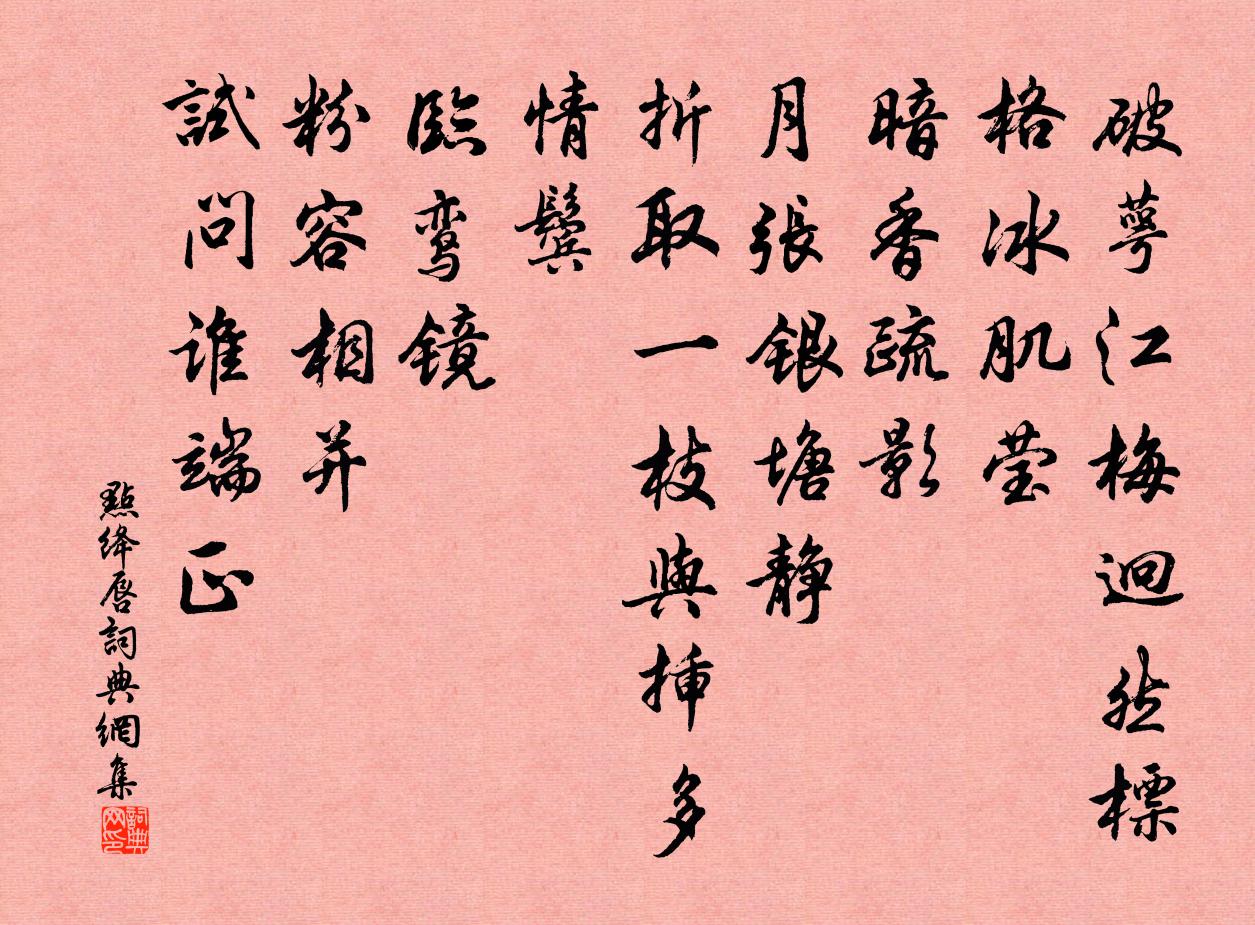 破萼江梅迥然標
格冰肌莹
暗香疏影
月張銀塘静
折取一枝與挿多
情鬓
臨鸾镜
粉容相并
試問谁端正
點绛唇詞典網集
詞典网印